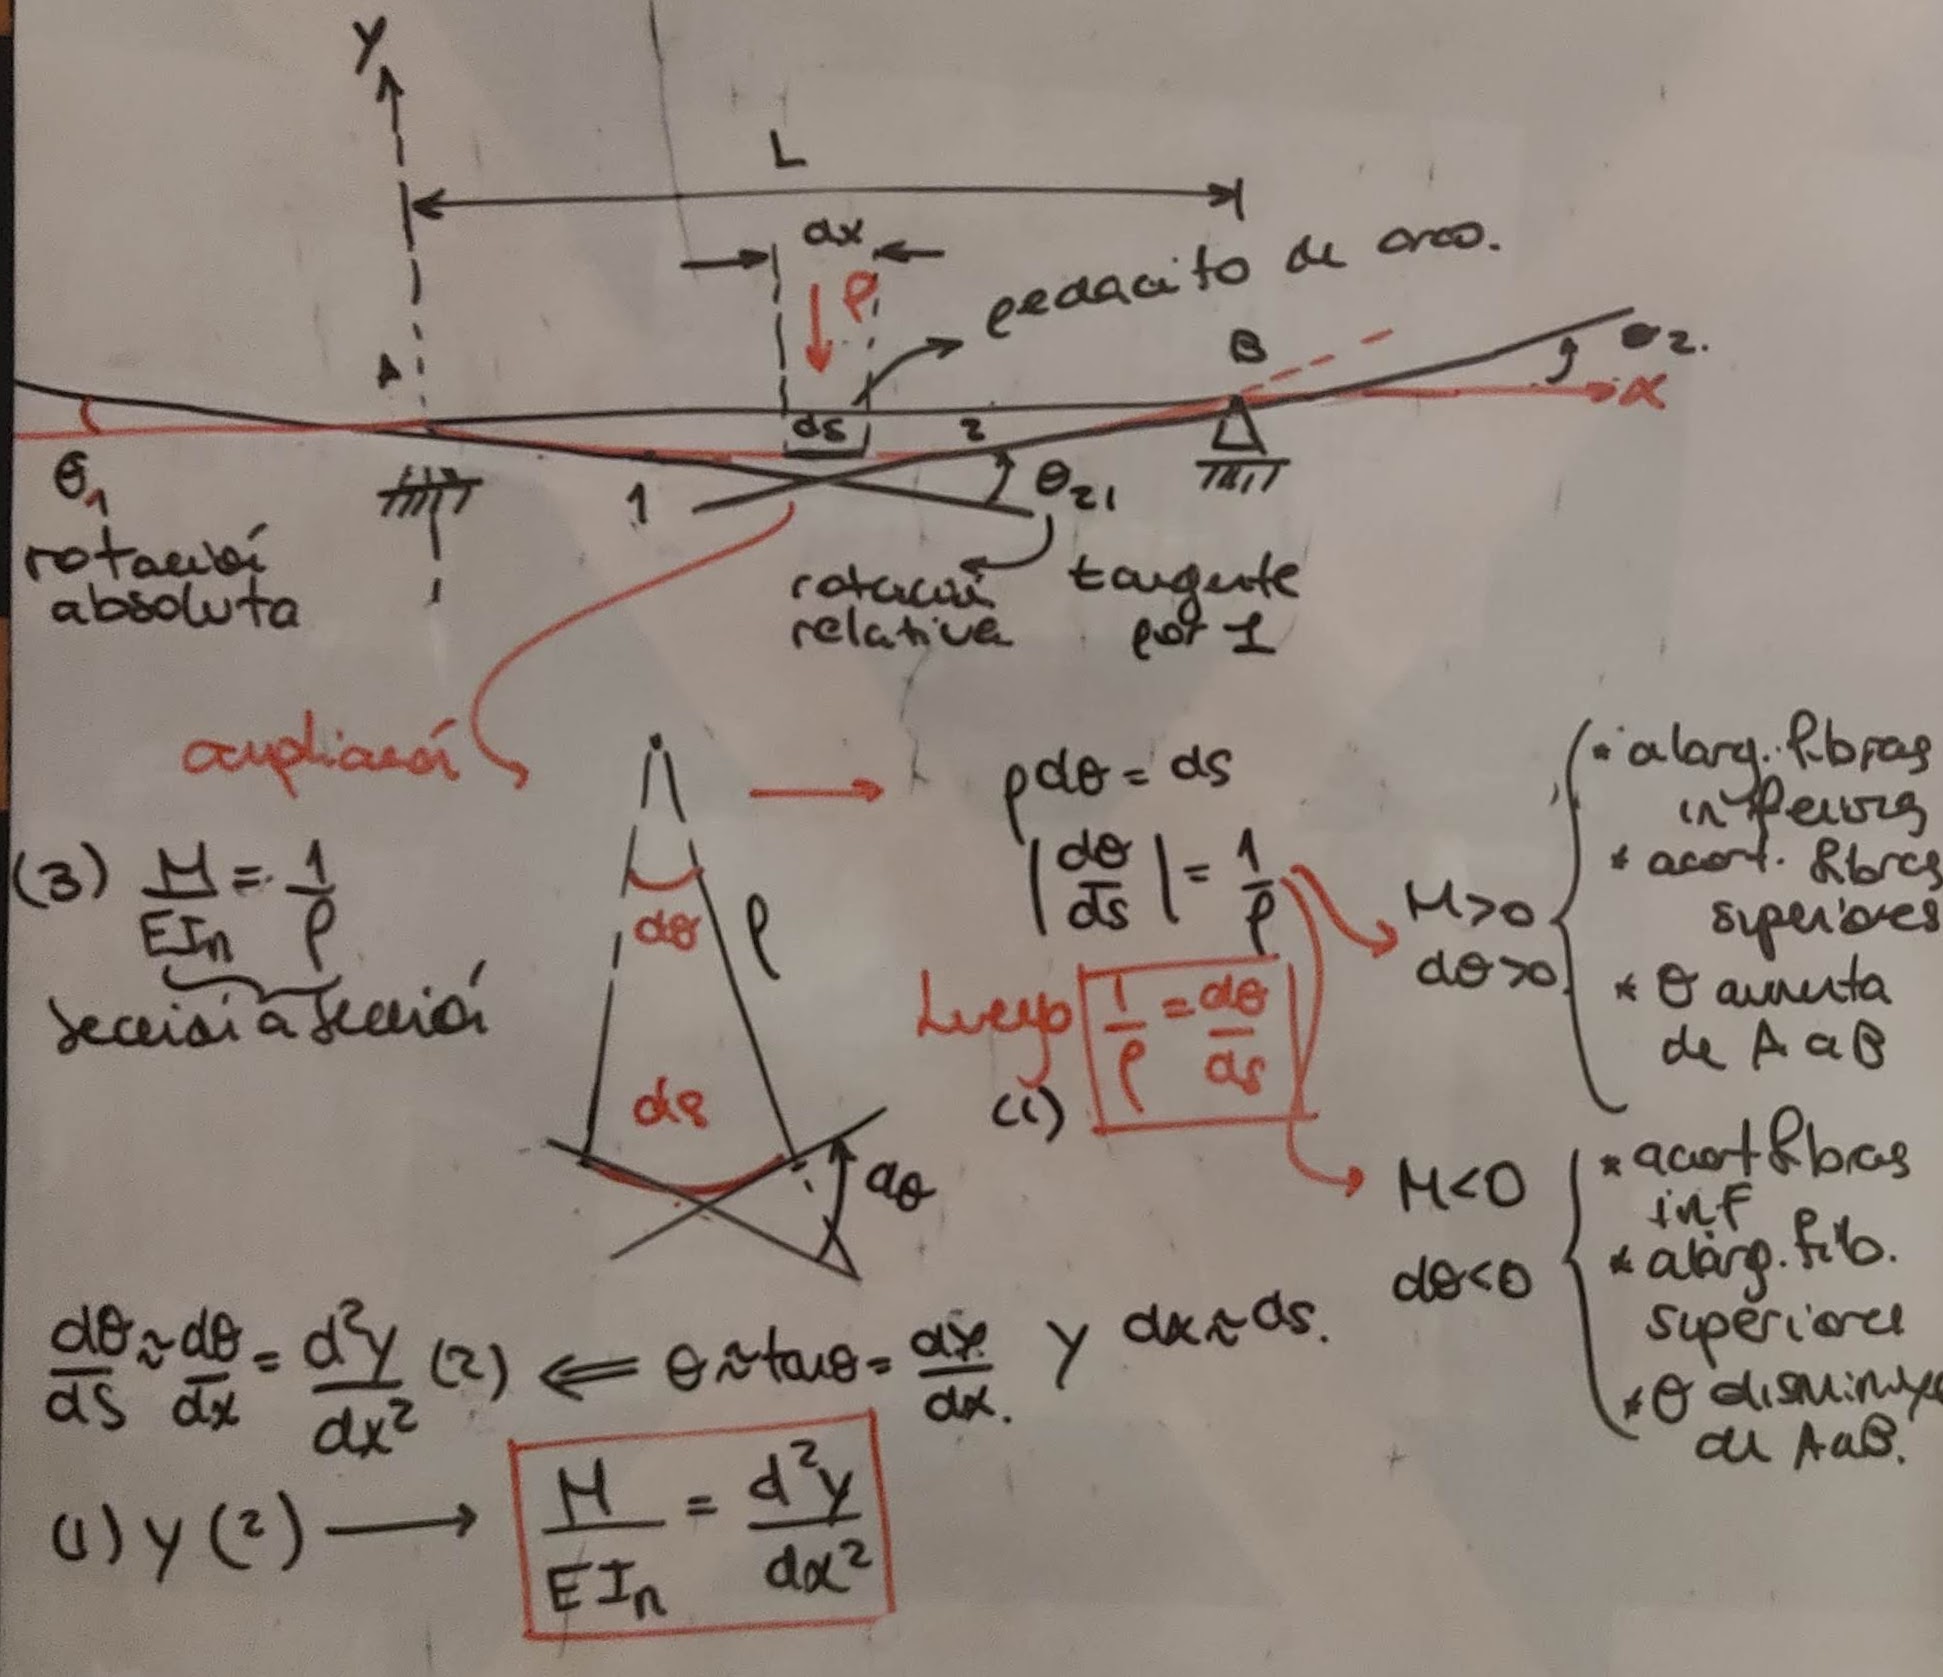 y
L
dx
P
pedacito de arco.
A
B
θ2.
x
ds
2
θ1
1
θ21
rotación
absoluta
rotación
relativa
tangente
por 1
ampliación
ρdθ = ds
|dθ/ds| = 1/ρ
(3) M/EIn = 1/ρ
sección a sección
dθ
ρ
Luego 1/ρ = dθ/ds
(1)
ds
dθ
M>0
dθ>0
* alarg. fibras
inferiores
* acort. fibras
superiores
* θ aumenta
de A a B
M<0
dθ<0
* acort fibras
inf
* alarg. fib.
superiores
* θ disminuye
de A a B.
dθ/ds ≈ dθ/dx = d²y/dx² (2) ⇐ θ ≈ tanθ = dy/dx. y dx ≈ ds.
(1) y (2) → M/EIn = d²y/dx²